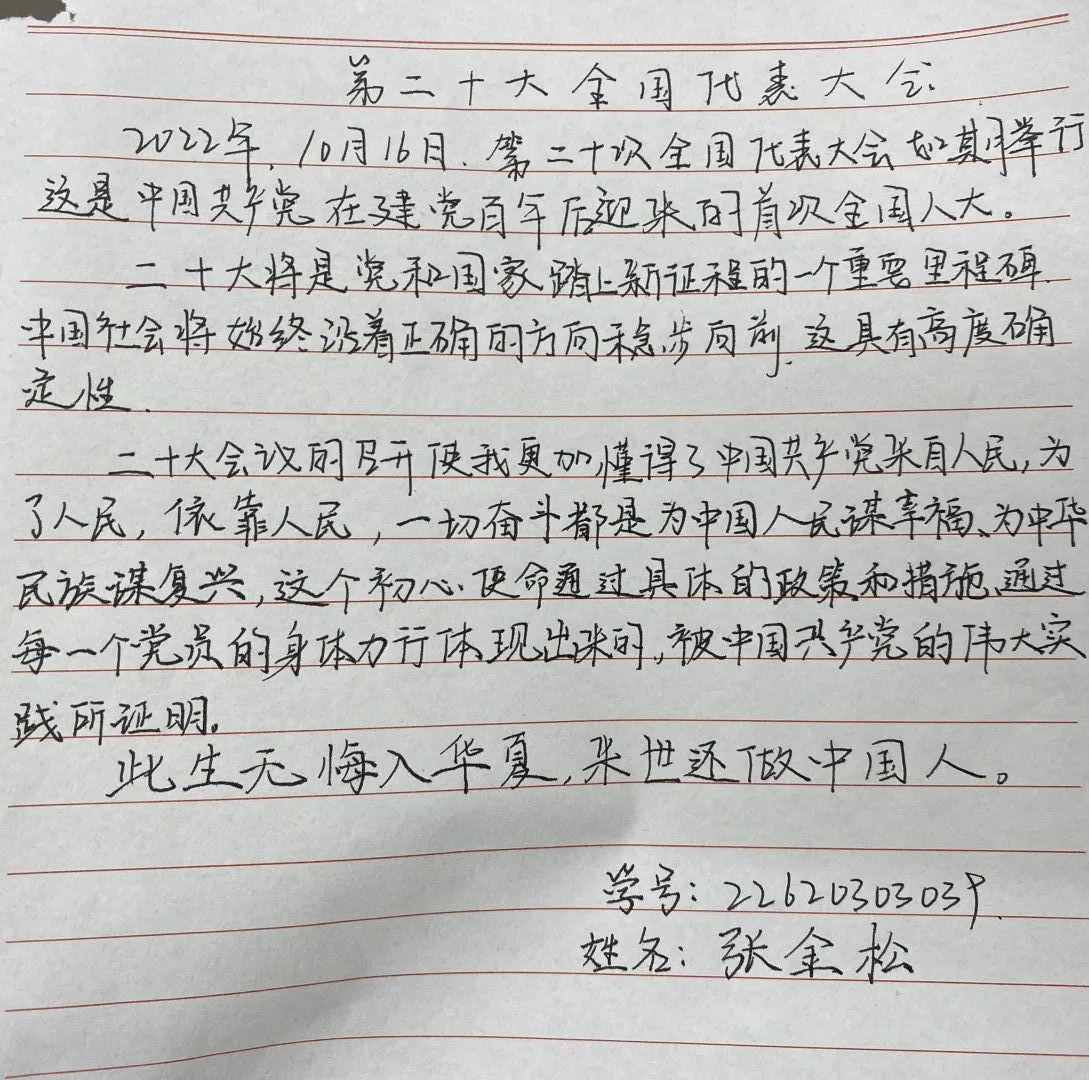 第二十大全国代表大会
2022年,10月16日.第二十次全国代表大会如期举行
这是中国共产党在建党百年后迎来的首次全国人大。
二十大将是党和国家踏上新征程的一个重要里程碑.
中国社会将始终沿着正确的方向稳步向前.这具有高度确
定性.
二十大会议的召开使我更加懂得了中国共产党来自人民,为
了人民,依靠人民,一切奋斗都是为中国人民谋幸福、为中华
民族谋复兴,这个初心.使命通过具体的政策和措施、通过
每一个党员的身体力行体现出来的,被中国共产党的伟大实
践所证明。
此生无悔入华夏,来世还做中国人。
学号:22620303039.
姓名:张金松